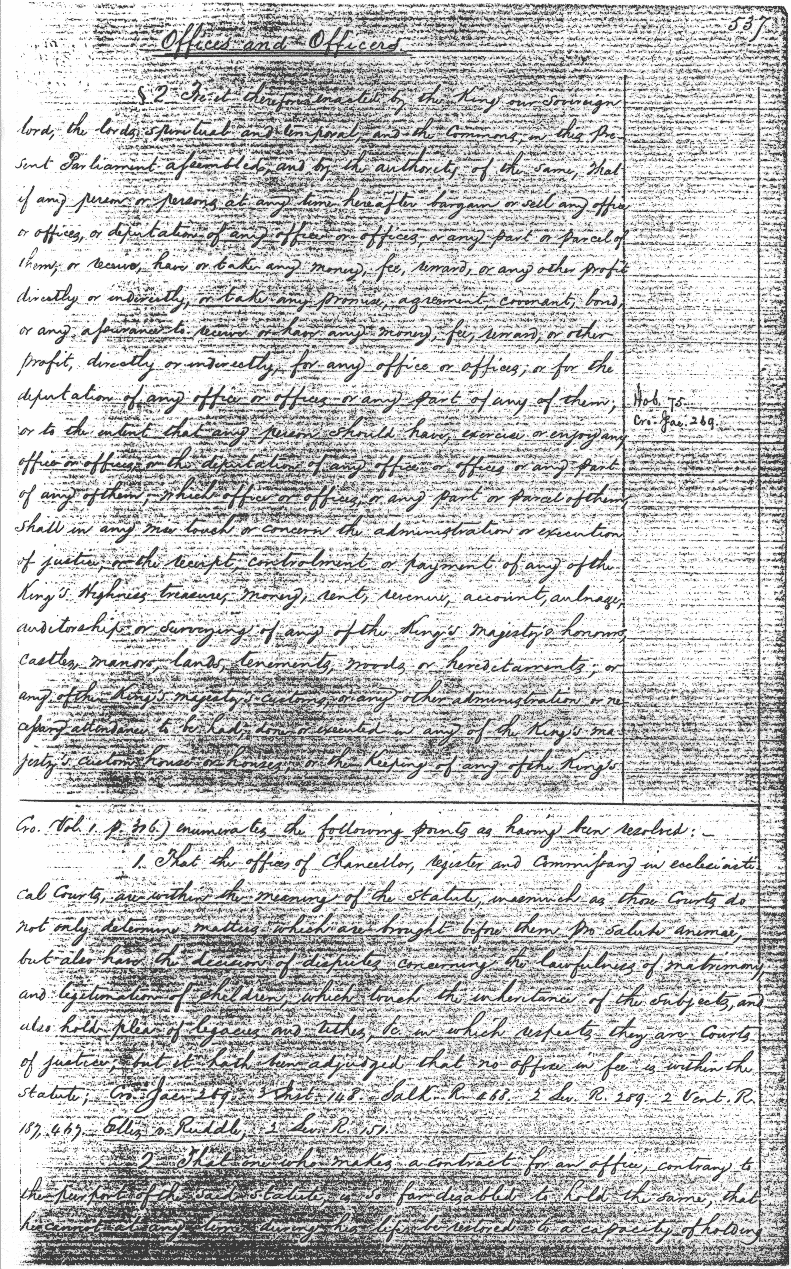 537
Offices and Officers.
§ 2 Be it therefore enacted by the King our Sovereign
lord, the lords spiritual and temporal, and the Commons, in this pre-
sent Parliament assembled, and by the authority of the same, that
if any person or persons at any time hereafter bargain or sell any office
or offices, or deputation of any office or offices, or any part or parcel of
them, or receive, have or take any money, fee, reward, or any other profit
directly or indirectly, or take any promise, agreement covenant, bond,
or any assurance to receive or have any money, fee, reward, or other
profit, directly or indirectly, for any office or offices, or for the
deputation of any office or offices or any part of any of them,
Hob. 75.
Cro. Jac. 269.
or to the intent that any person should have, exercise or enjoy any
office or offices, or the deputation of any office or offices or any part
of any of them, which office or offices, or any part or parcel of them,
shall in any wise touch or concern the administration or execution
of justice, or the receipt, controlment or payment of any of the
King's Highness treasure, money, rent, revenue, account, aulnage,
auditorship or surveying of any of the King's Majesty's honours,
castles, manors, lands, tenements, woods or hereditaments; or
any of the King's majesty's customs, or any other administration or ne
cessary attendance to be had, done or executed in any of the King's ma-
jesty's custom house or houses, or the Keeping of any of the King's
Cro. Vol. 1. p. 316.) enumerates the following points as having been resolved: –
1. That the offices of Chancellor, register and Commissary in ecclesiasti
cal Courts, are within the meaning of the statute, inasmuch as those Courts do
not only determine matters which are brought before them pro salute animae,
but also have the decision of disputes concerning the lawfulness of matrimony
and legitimation of children, which touch the inheritance of the subjects, and
also hold pleas of legacies and tithes, &c in which respects they are Courts
of justice; but it hath been adjudged that no office in fee is within the
statute; Cro. Jac. 269. 3 Inst. 148. Salk. R. 468. 2 Lev. R. 289. 2 Vent. R.
187. 467. Ellis v. Ruddle, 2 Lev. R. 151.
2 That one who makes a contract for an office, contrary to
the purport of the said statute, is so far disabled to hold the same, that
he cannot at any time during his life be restored to a capacity of holding